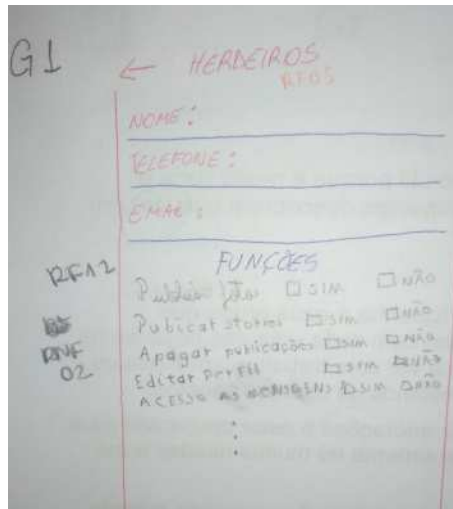 G1
← HERDEIROS
RF05
NOME:
TELEFONE:
EMAIL:
FUNÇÕES
RF12
Publicar fotos □ SIM □ NÃO
Pubicar stories □ SIM □ NÃO
RNF 02
Apagar publicações □ SIM □ NÃO
Editar Perfil □ SIM □ NÃO
ACESSO AS MENSAGENS □ SIM □ NÃO